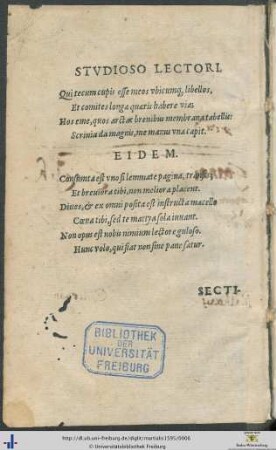 STVDIOSO LECTORI.
Qui tecum cupis esse meos vbicunq; libellos,
Et comites longæ quæris habere viæ:
Hos eme, quos arctat breuibus membrana tabellis:
Scrinia da magnis, me manus vna capit.
EIDEM.
Consumta est vno si lemmate pagina, transis,
Et breuiora tibi, non meliora placent.
Diues, & ex omni posita est instructa macello
Cœna tibi, sed te mattya sola iuuant.
Non opus est nobis nimium lectore guloso.
Hunc volo, qui fiat non sine pane satur.
SECTI-
BIBLIOTHEK
DER
UNIVERSITÄT
FREIBURG
http://dl.ub.uni-freiburg.de/diglit/martialis1595/0006
© Universitätsbibliothek Freiburg